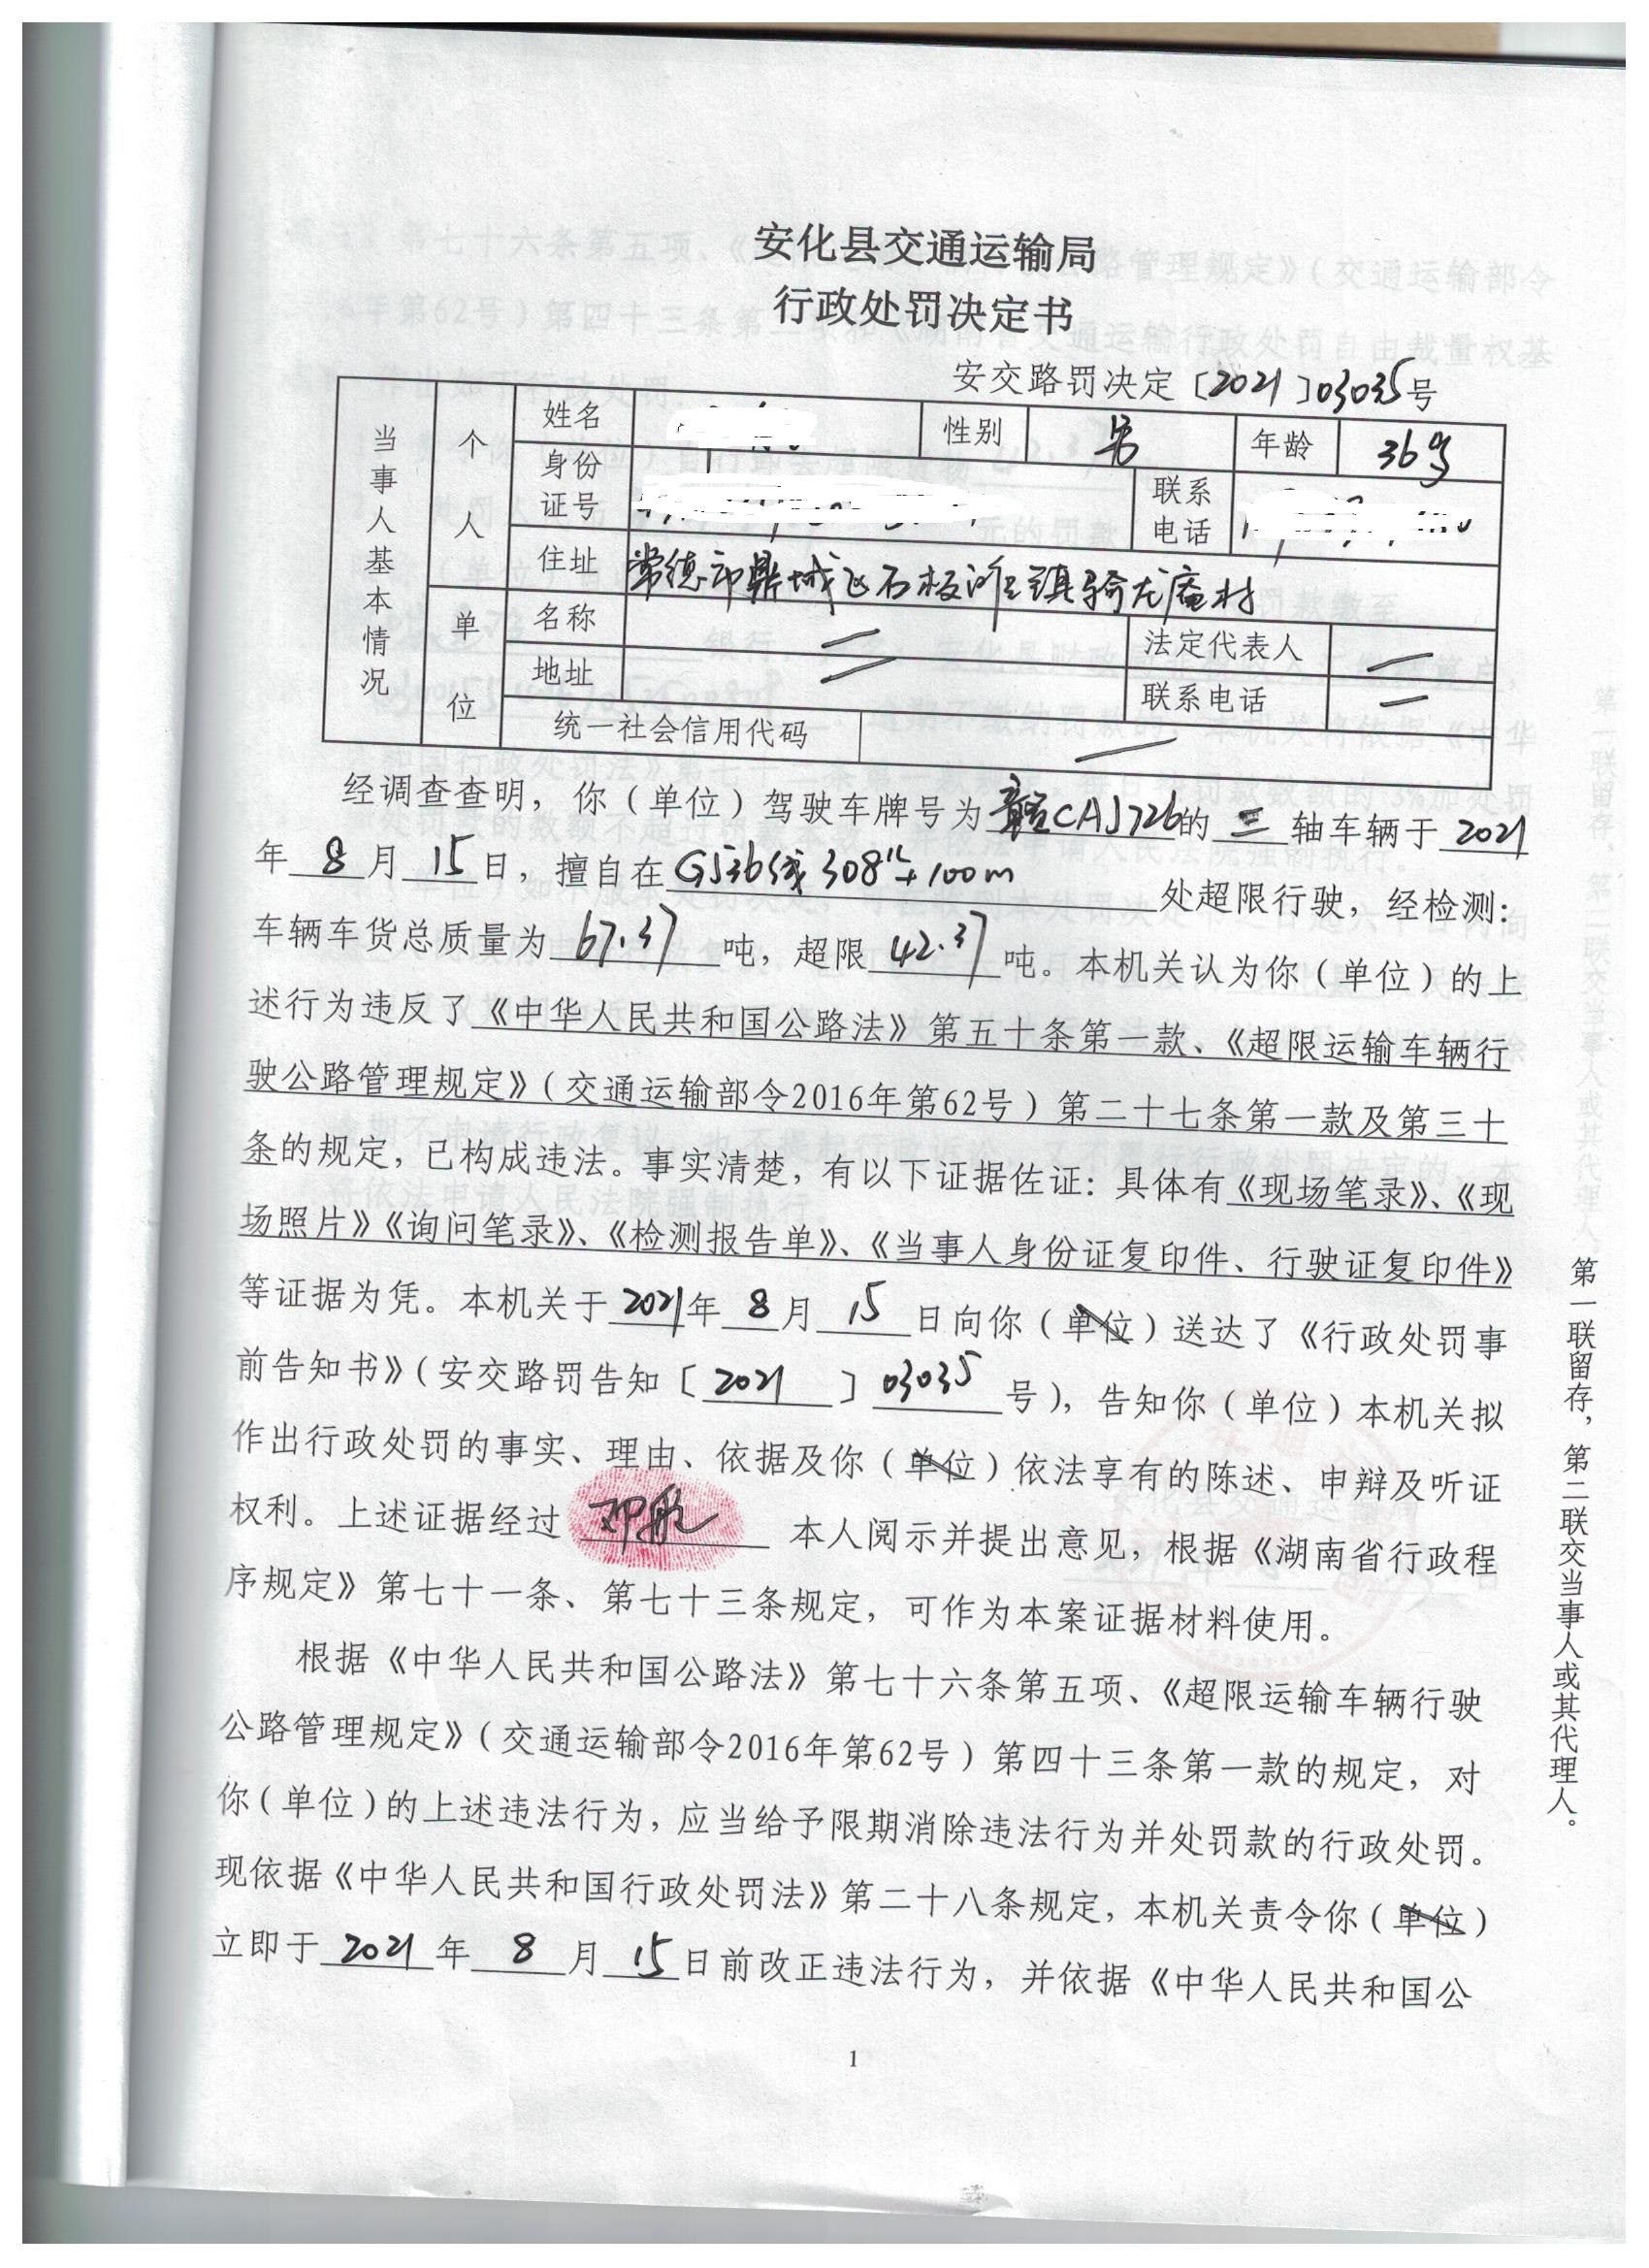 安化县交通运输局
行政处罚决定书
安交路罚决定〔2021〕03035号
当事人基本情况
个人
姓名
性别 男 年龄 36岁
身份证号
联系电话
住址 常德市鼎城区石板滩镇骑龙庵村
单位
名称
法定代表人
地址
联系电话
统一社会信用代码
经调查查明，你（单位）驾驶车牌号为赣CAJ726的三轴车辆于2021
年8月15日，擅自在G536线308K+100m处超限行驶，经检测：
车辆车货总质量为67.37吨，超限42.37吨。本机关认为你（单位）的上
述行为违反了《中华人民共和国公路法》第五十条第一款、《超限运输车辆行
驶公路管理规定》（交通运输部令2016年第62号）第二十七条第一款及第三十
条的规定，已构成违法。事实清楚，有以下证据佐证：具体有《现场笔录》、《现
场照片》《询问笔录》、《检测报告单》、《当事人身份证复印件、行驶证复印件》
等证据为凭。本机关于2021年8月15日向你（单位）送达了《行政处罚事
前告知书》（安交路罚告知〔2021〕03035号），告知你（单位）本机关拟
作出行政处罚的事实、理由、依据及你（单位）依法享有的陈述、申辩及听证
权利。上述证据经过邓航本人阅示并提出意见，根据《湖南省行政程
序规定》第七十一条、第七十三条规定，可作为本案证据材料使用。
根据《中华人民共和国公路法》第七十六条第五项、《超限运输车辆行驶
公路管理规定》（交通运输部令2016年第62号）第四十三条第一款的规定，对
你（单位）的上述违法行为，应当给予限期消除违法行为并处罚款的行政处罚。
现依据《中华人民共和国行政处罚法》第二十八条规定，本机关责令你（单位）
立即于2021年8月15日前改正违法行为，并依据《中华人民共和国公
第一联留存，第二联交当事人或其代理人。
1